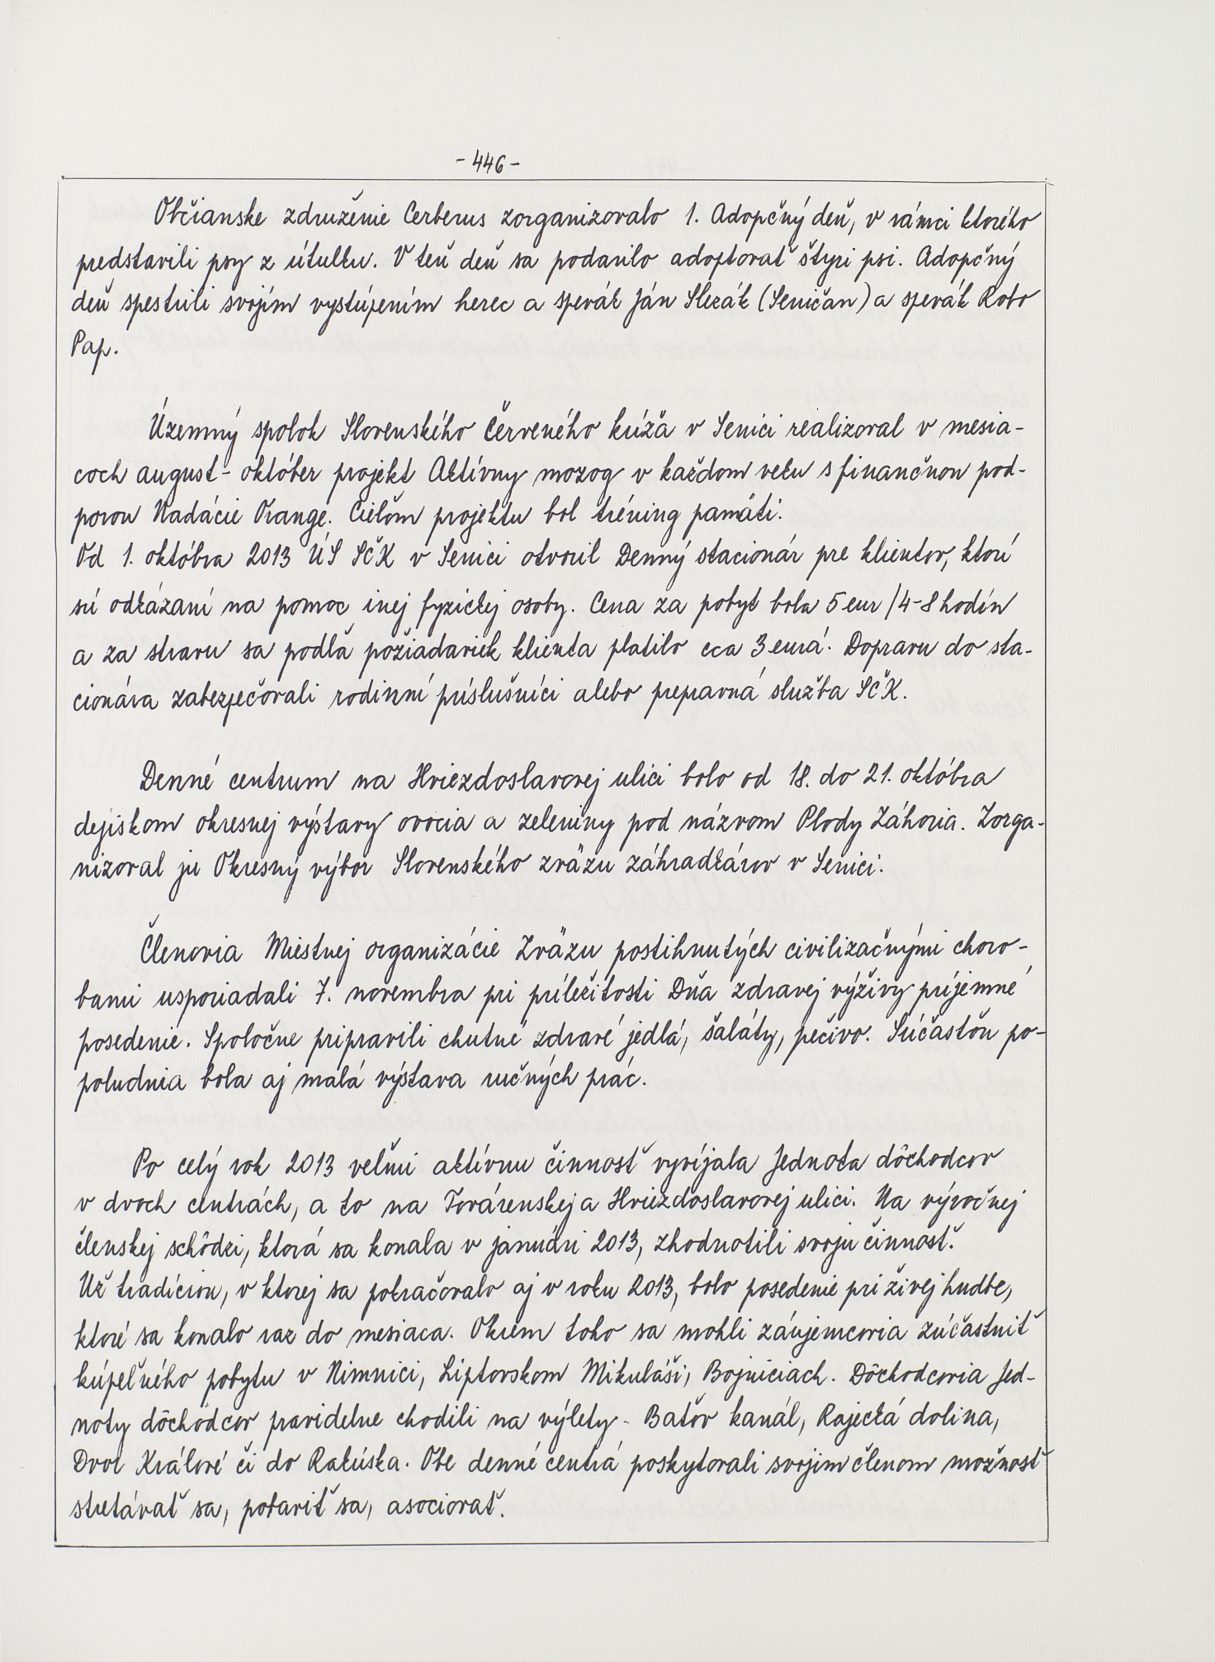 - 446 -
Občianske združenie Cerberus zorganizovalo 1. Adopčný deň, v rámci ktorého
predstavili psy z útulku. V ten deň sa podarilo adoptovať štyri psi. Adopčný
deň spestrili svojím vystúpením herec a spevák Ján Slezák (Seničan) a spevák Robo
Pap.
Územný spolok Slovenského Červeného kríža v Senici realizoval v mesia-
coch august - október projekt Aktívny mozog v každom veku s finančnou pod-
porou Nadácie Orange. Cieľom projektu bol tréning pamäti.
Od 1. októbra 2013 ÚS SČK v Senici otvoril Denný stacionár pre klientov, ktorí
sú odkázaní na pomoc inej fyzickej osoby. Cena za pobyt bola 5 eur /4-8 hodín
a za stravu sa podľa požiadaviek klienta platilo cca 3 eurá. Dopravu do sta-
cionára zabezpečovali rodinní príslušníci alebo prepravná služba SČK.
Denné centrum na Hviezdoslavovej ulici bolo od 18. do 21. októbra
dejiskom okresnej výstavy ovocia a zeleniny pod názvom Plody Záhoria. Zorga-
nizoval ju Okresný výbor Slovenského zväzu záhradkárov v Senici.
Členovia Miestnej organizácie Zväzu postihnutých civilizačnými choro-
bami usporiadali 7. novembra pri príležitosti Dňa zdravej výživy príjemné
posedenie. Spoločne pripravili chutné zdravé jedlá, šaláty, pečivo. Súčasťou po-
poludnia bola aj malá výstava ručných prác.
Po celý rok 2013 veľmi aktívnu činnosť vyvíjala Jednota dôchodcov
v dvoch centrách, a to na Továrenskej a Hviezdoslavovej ulici. Na výročnej
členskej schôdzi, ktorá sa konala v januári 2013, zhodnotili svoju činnosť.
Už tradíciou, v ktorej sa pokračovalo aj v roku 2013, bolo posedenie pri živej hudbe,
ktoré sa konalo raz do mesiaca. Okrem toho sa mohli záujemcovia zúčastniť
kúpeľného pobytu v Nimnici, Liptovskom Mikuláši, Bojniciach. Dôchodcovia Jed-
noty dôchodcov pravidelne chodili na výlety - Baťov kanál, Rajecká dolina,
Dvor Králové či do Rakúska. Obe denné centrá poskytovali svojim členom možnosť
stretávať sa, pobaviť sa, asociovať.